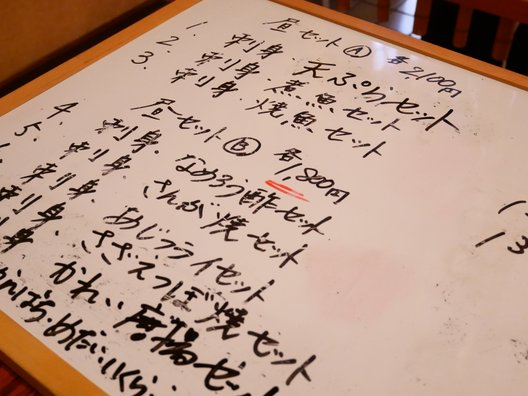 昼セットⒶ 各2,100円
1. 刺身、天ぷらセット
2. 刺身、煮魚セット
3. 刺身、焼魚セット
昼セットⒷ 各1,800円
4 刺身、なめろう酢セット
5. 刺身、さんが焼セット
刺身、あじフライセット
刺身、さざえつぼ焼セット
身、かれい唐揚セット
めだい、いくら
13